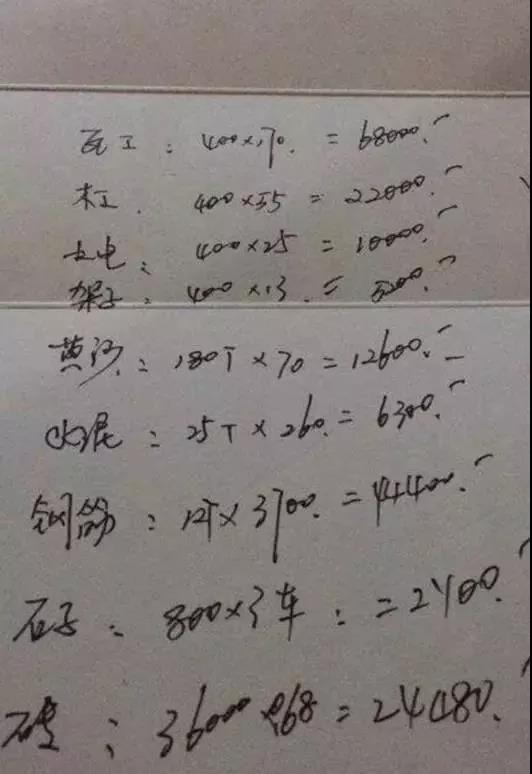 瓦工：400×170.=68000.-
木工.400×55=22000.-
水电：400×25=10000.-
架子：400×13.=5200.-
黄沙：180T×70=12600.-
水泥：25T×260.=6300.-
钢筋：12T×3700.=44400.-
石子：800×3车：=2400.-
砖：36000×0.68=24480.-